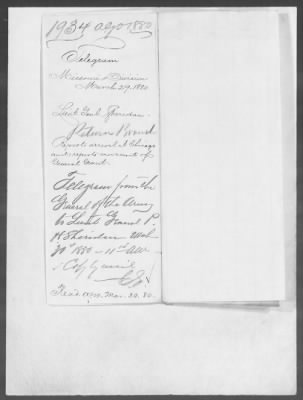 1934 AGO 1880
Telegram
Missouri Division
March 29. 1880.
Lieut. Genl. Sheridan.
Return
Reports arrival at Chicago
and reports movement of
General Grant.
Telegram from the
General of the Army
to Lieut General P
H Sheridan Mch
1880 -
Copy by mail
Read Mar. 29. 80.